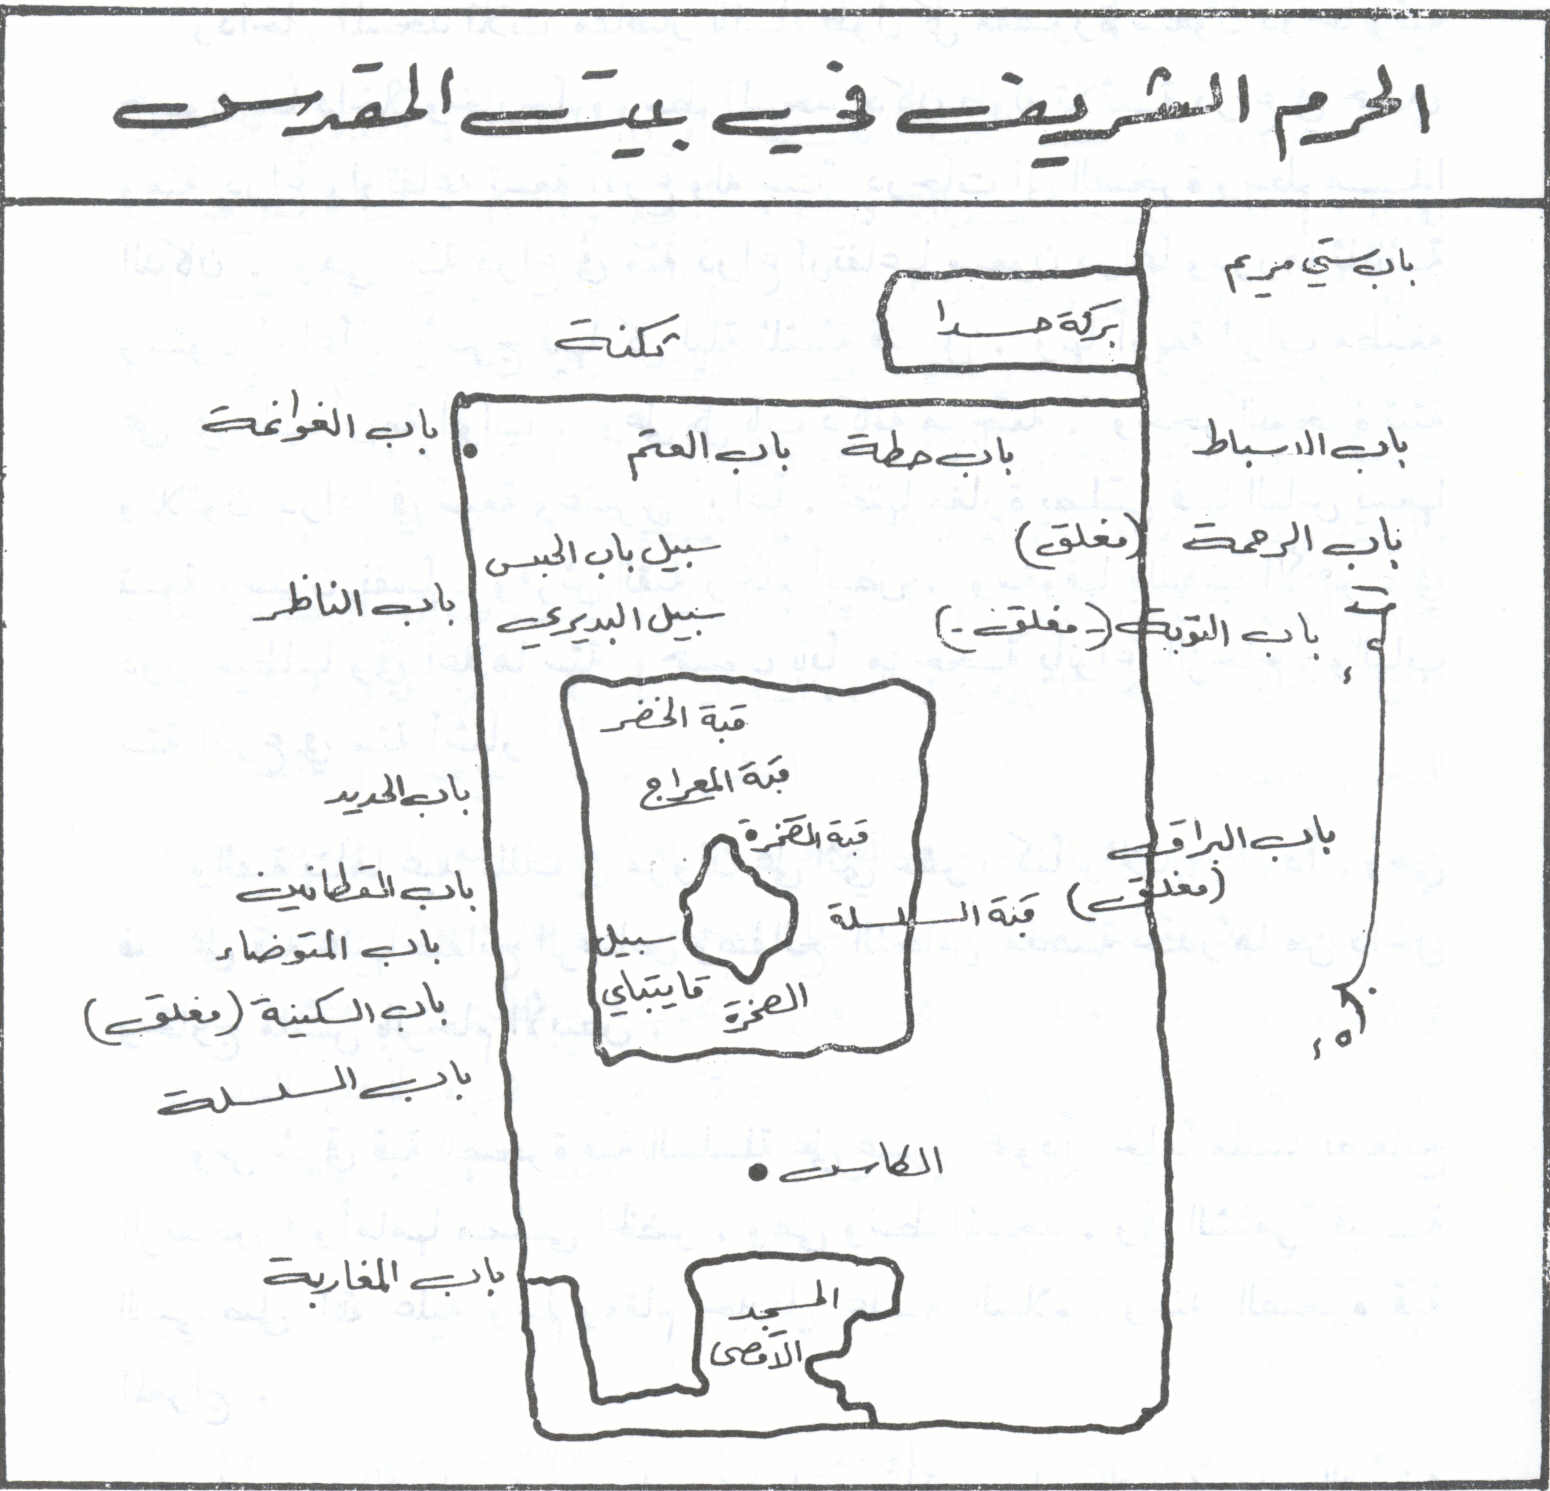 الحرم الشريف في بيت المقدس
باب ستي مريم
بركة حسدا
ثكنة
باب الغوانمة
باب العتم
باب حطة
باب الاسباط
باب الرحمة (مغلق)
باب التوبة (- مغلق -)
سبيل باب الحبس
باب الناظر
سبيل البديري
قبة الخضر
قبة المعراج
باب الحديد
قبة الصخرة
باب البراق
(مغلق)
باب القطانين
قبة السلسلة
باب المتوضاء
سبيل
قايتباي
الصخرة
باب السكينة (مغلق)
باب السلسلة
الكاس
باب المغاربة
المسجد
الأقصى